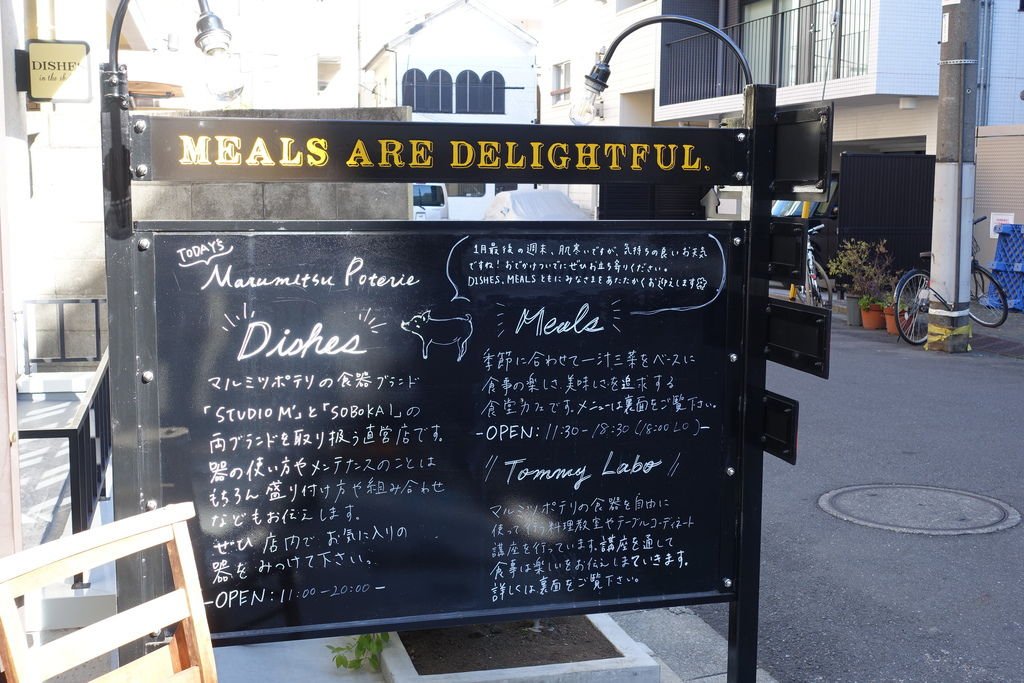 DISHES
in the sh
MEALS ARE DELIGHTFUL.
TODAY's
Marumitsu Poterie
1月最後の週末、肌寒いですが、気持ちの良いお天気
ですね！おでかけついでにぜひお立ち寄りください。
DISHES、MEALSともにみなさまをあたたかくお迎えします
Dishes
マルミツポテリの食器ブランド
「STUDIO M'」と「SOBOKAI」の
両ブランドを取り扱う直営店です。
器の使い方やメンテナンスのことは
もちろん 盛り付け方や組み合わせ
などもお伝えします。
ぜひ 店内で お気に入りの
器をみつけて下さい。
-OPEN: 11:00-20:00-
Meals
季節に合わせて一汁三菜をベースに
食事の楽しさ、美味しさを追求する
食堂カフェです。メニューは裏面をご覧下さい。
-OPEN: 11:30-18:30 (18:00 LO)-
Tommy Labo
マルミツポテリの食器を自由に
使って行う料理教室やテーブルコーディネート
講座を行っています。講座を通して
食事は楽しいをお伝えしていきます。
詳しくは裏面をご覧下さい。